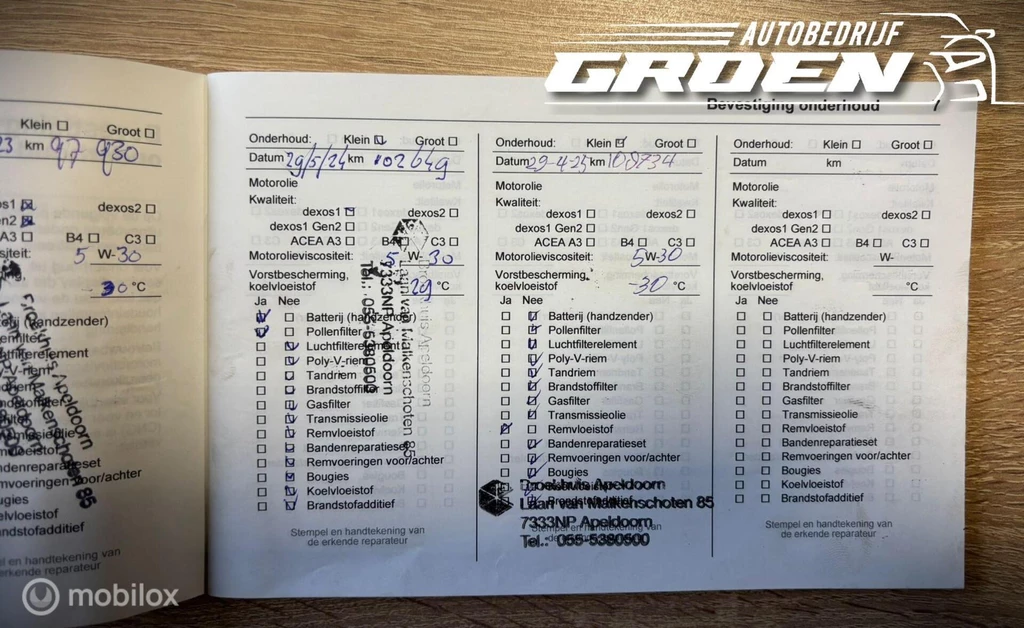 AUTOBEDRIJF
GROEN
Bevestiging onderhoud 7
Klein Groot
23 km 97930
dexos2
A3 B4 C3
5 W-30
30 °C
Stempel en handtekening van
Onderhoud: Klein Groot
Datum 29/5/24 km 102649
Motorolie
Kwaliteit:
dexos1 dexos2
dexos1 Gen2
ACEA A3 B4 C3
Motorolieviscositeit: 5 W-30
Vorstbescherming,
koelvloeistof 29 °C
Ja Nee
Batterij (handzender)
Pollenfilter
Luchtfilterelement
Poly-V-riem
Tandriem
Brandstoffilter
Gasfilter
Transmissieolie
Remvloeistof
Bandenreparatieset
Remvoeringen voor/achter
Bougies
Koelvloeistof
Brandstofadditief
Laan van Malkenschoten 85
7333NP Apeldoorn
Tel.: 055-5380500
Stempel en handtekening van
de erkende reparateur
Onderhoud: Klein Groot
Datum 29-4-25 km 108734
Motorolie
Kwaliteit:
dexos1 dexos2
dexos1 Gen2
ACEA A3 B4 C3
Motorolieviscositeit: 5W-30
Vorstbescherming,
koelvloeistof -30 °C
Ja Nee
Batterij (handzender)
Pollenfilter
Luchtfilterelement
Poly-V-riem
Tandriem
Brandstoffilter
Gasfilter
Transmissieolie
Remvloeistof
Bandenreparatieset
Remvoeringen voor/achter
Bougies
Brandstofadditief
Apeldoorn
Laan van Malkenschoten 85
7333NP Apeldoorn
Tel.: 055-5380500
Stempel en handtekening van
de erkende reparateur
Onderhoud: Klein Groot
Datum km
Motorolie
Kwaliteit:
dexos1 dexos2
dexos1 Gen2
ACEA A3 B4 C3
Motorolieviscositeit: W-
Vorstbescherming,
koelvloeistof °C
Ja Nee
Batterij (handzender)
Pollenfilter
Luchtfilterelement
Poly-V-riem
Tandriem
Brandstoffilter
Gasfilter
Transmissieolie
Remvloeistof
Bandenreparatieset
Remvoeringen voor/achter
Bougies
Koelvloeistof
Brandstofadditief
Stempel en handtekening van
de erkende reparateur
mobilox